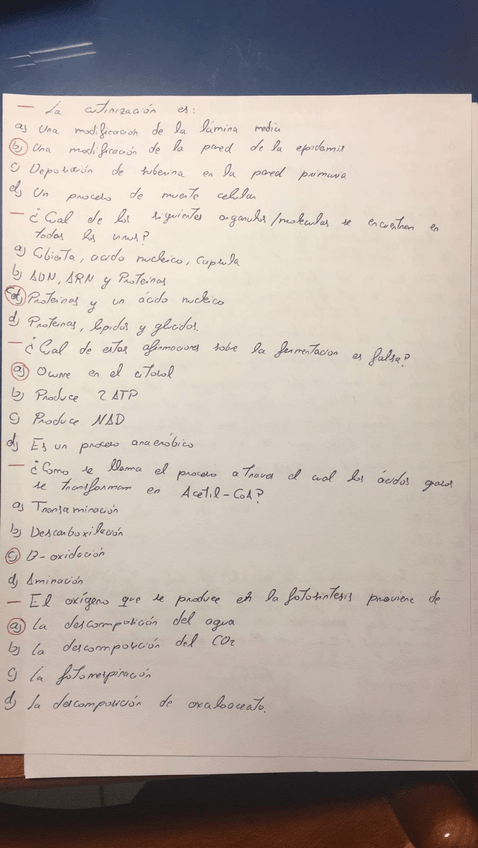 — La cutinización es:
a) Una modificación de la lámina media
b) Una modificación de la pared de la epidermis
c) Deposición de suberina en la pared primaria
d) Un proceso de muerte celular
— ¿Cual de los siguientes organulos/moleculas se encuentran en
todos los virus?
a) Cbiota, acido nucleico, capsula
b) ADN, ARN y Proteinas
c) Proteinas y un ácido nucleico
d) Proteinas, lipidos y glucidos.
— ¿Cual de estas afirmaciones sobre la fermentacion es falsa?
a) Ocurre en el citosol
b) Produce 2 ATP
c) Produce NAD
d) Es un proceso anaeróbico
— ¿Como se llama el proceso a traves del cual los ácidos grasos
se transforman en Acetil-CoA?
a) Transaminación
b) Descarboxilación
c) B-oxidación
d) Aminación
— El oxígeno que se produce en la fotosintesis proviene de
a) La descomposición del agua
b) La descomposición del CO2
c) La fotorrespiración
d) La descomposición de oxalacetato.